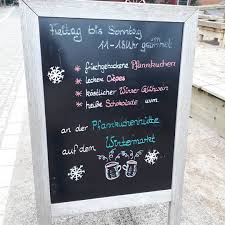 Freitag bis Sonntag
von
11-18 Uhr geöffnet
* frischgebackene Pfannkuchen
* leckere Crêpes
* köstlicher Winzer Glühwein
* heiße Schokolade uvm.
an der Pfannkuchenhütte
auf dem Wintermarkt